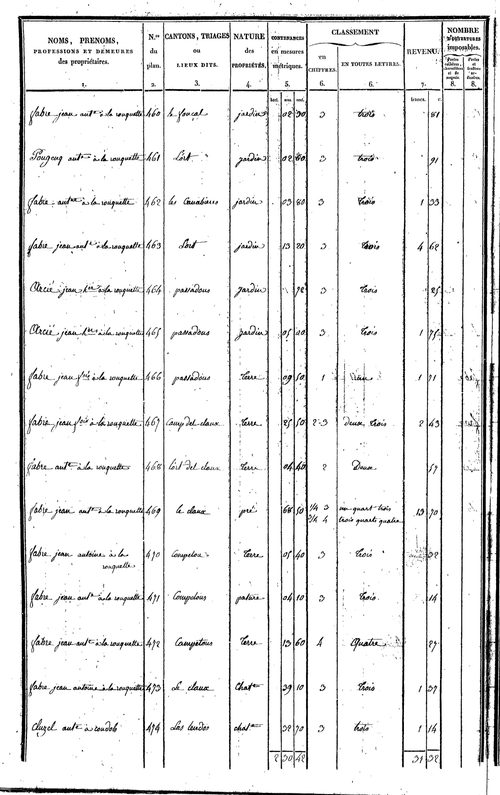 NOMS, PRENOMS, PROFESSIONS ET DEMEURES des propriétaires. | N.os du plan. | CANTONS, TRIAGES ou LIEUX DITS. | NATURE des PROPRIÉTÉS. | CONTENANCES en mesures métriques. | CLASSEMENT en CHIFFRES. | EN TOUTES LETTRES. | REVENU. | NOMBRE D'OUVERTURES imposables.
1. 2. 3. 4. 5. 6. 6. 7. 8. 8.
francs. c.
fabre jean ant.ne à la rouquette 460 le fouçal jardin 02 90 3 trois 81
ant.ne à la rouquette 461 L'ort jardin 02 80 3 trois 91
fabre ant.ne à la rouquette 462 les Canabieres jardin 03 80 3 trois 1 33
fabre jean ant.ne à la rouquette 463 L'ort jardin 13 20 3 trois 4 62
jean à la rouquette 464 passadous jardin 72 3 trois 25
jean à la rouquette 465 passadous jardin 05 3 trois 1 75
fabre jean à la rouquette 466 passadous terre 09 50 1 un 1 71
fabre jean à la rouquette 467 Camp del claux terre 25 50 2-3 deux trois 2 43
fabre ant.ne à la rouquette 468 l'ort del claux terre 04 40 2 Deux 57
fabre jean ant.ne à la rouquette 469 le claux pré 68 50 1/4 3 un quart trois 13 70
3/4 4 trois quarts quatre
fabre jean antoine à la rouquette 470 terre 05 40 3 trois 32
fabre jean ant.ne à la rouquette 471 Campelous pature 04 10 3 trois 14
fabre jean ant.ne à la rouquette 472 Campelous terre 13 60 4 quatre 27
fabre jean antoine à la rouquette 473 Le claux chat.ne 39 10 3 trois 1 37
ant.ne à 474 Las chat.ne 32 70 3 trois 1 14
2 30 42 31 32